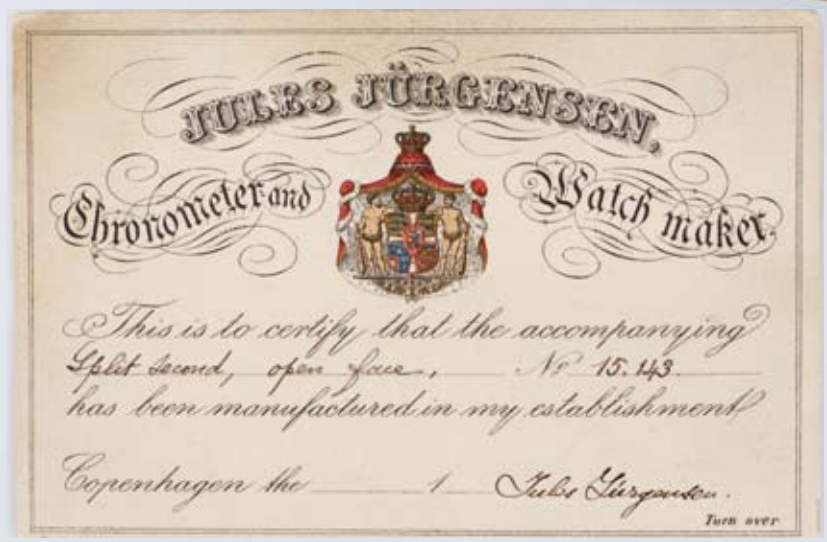 JULES JÜRGENSEN,
Chronometer and Watch maker.
This is to certify that the accompanying
Split second, open face, No 15.143.
has been manufactured in my establishment
Copenhagen the 1 Jules Jürgensen.
Turn over